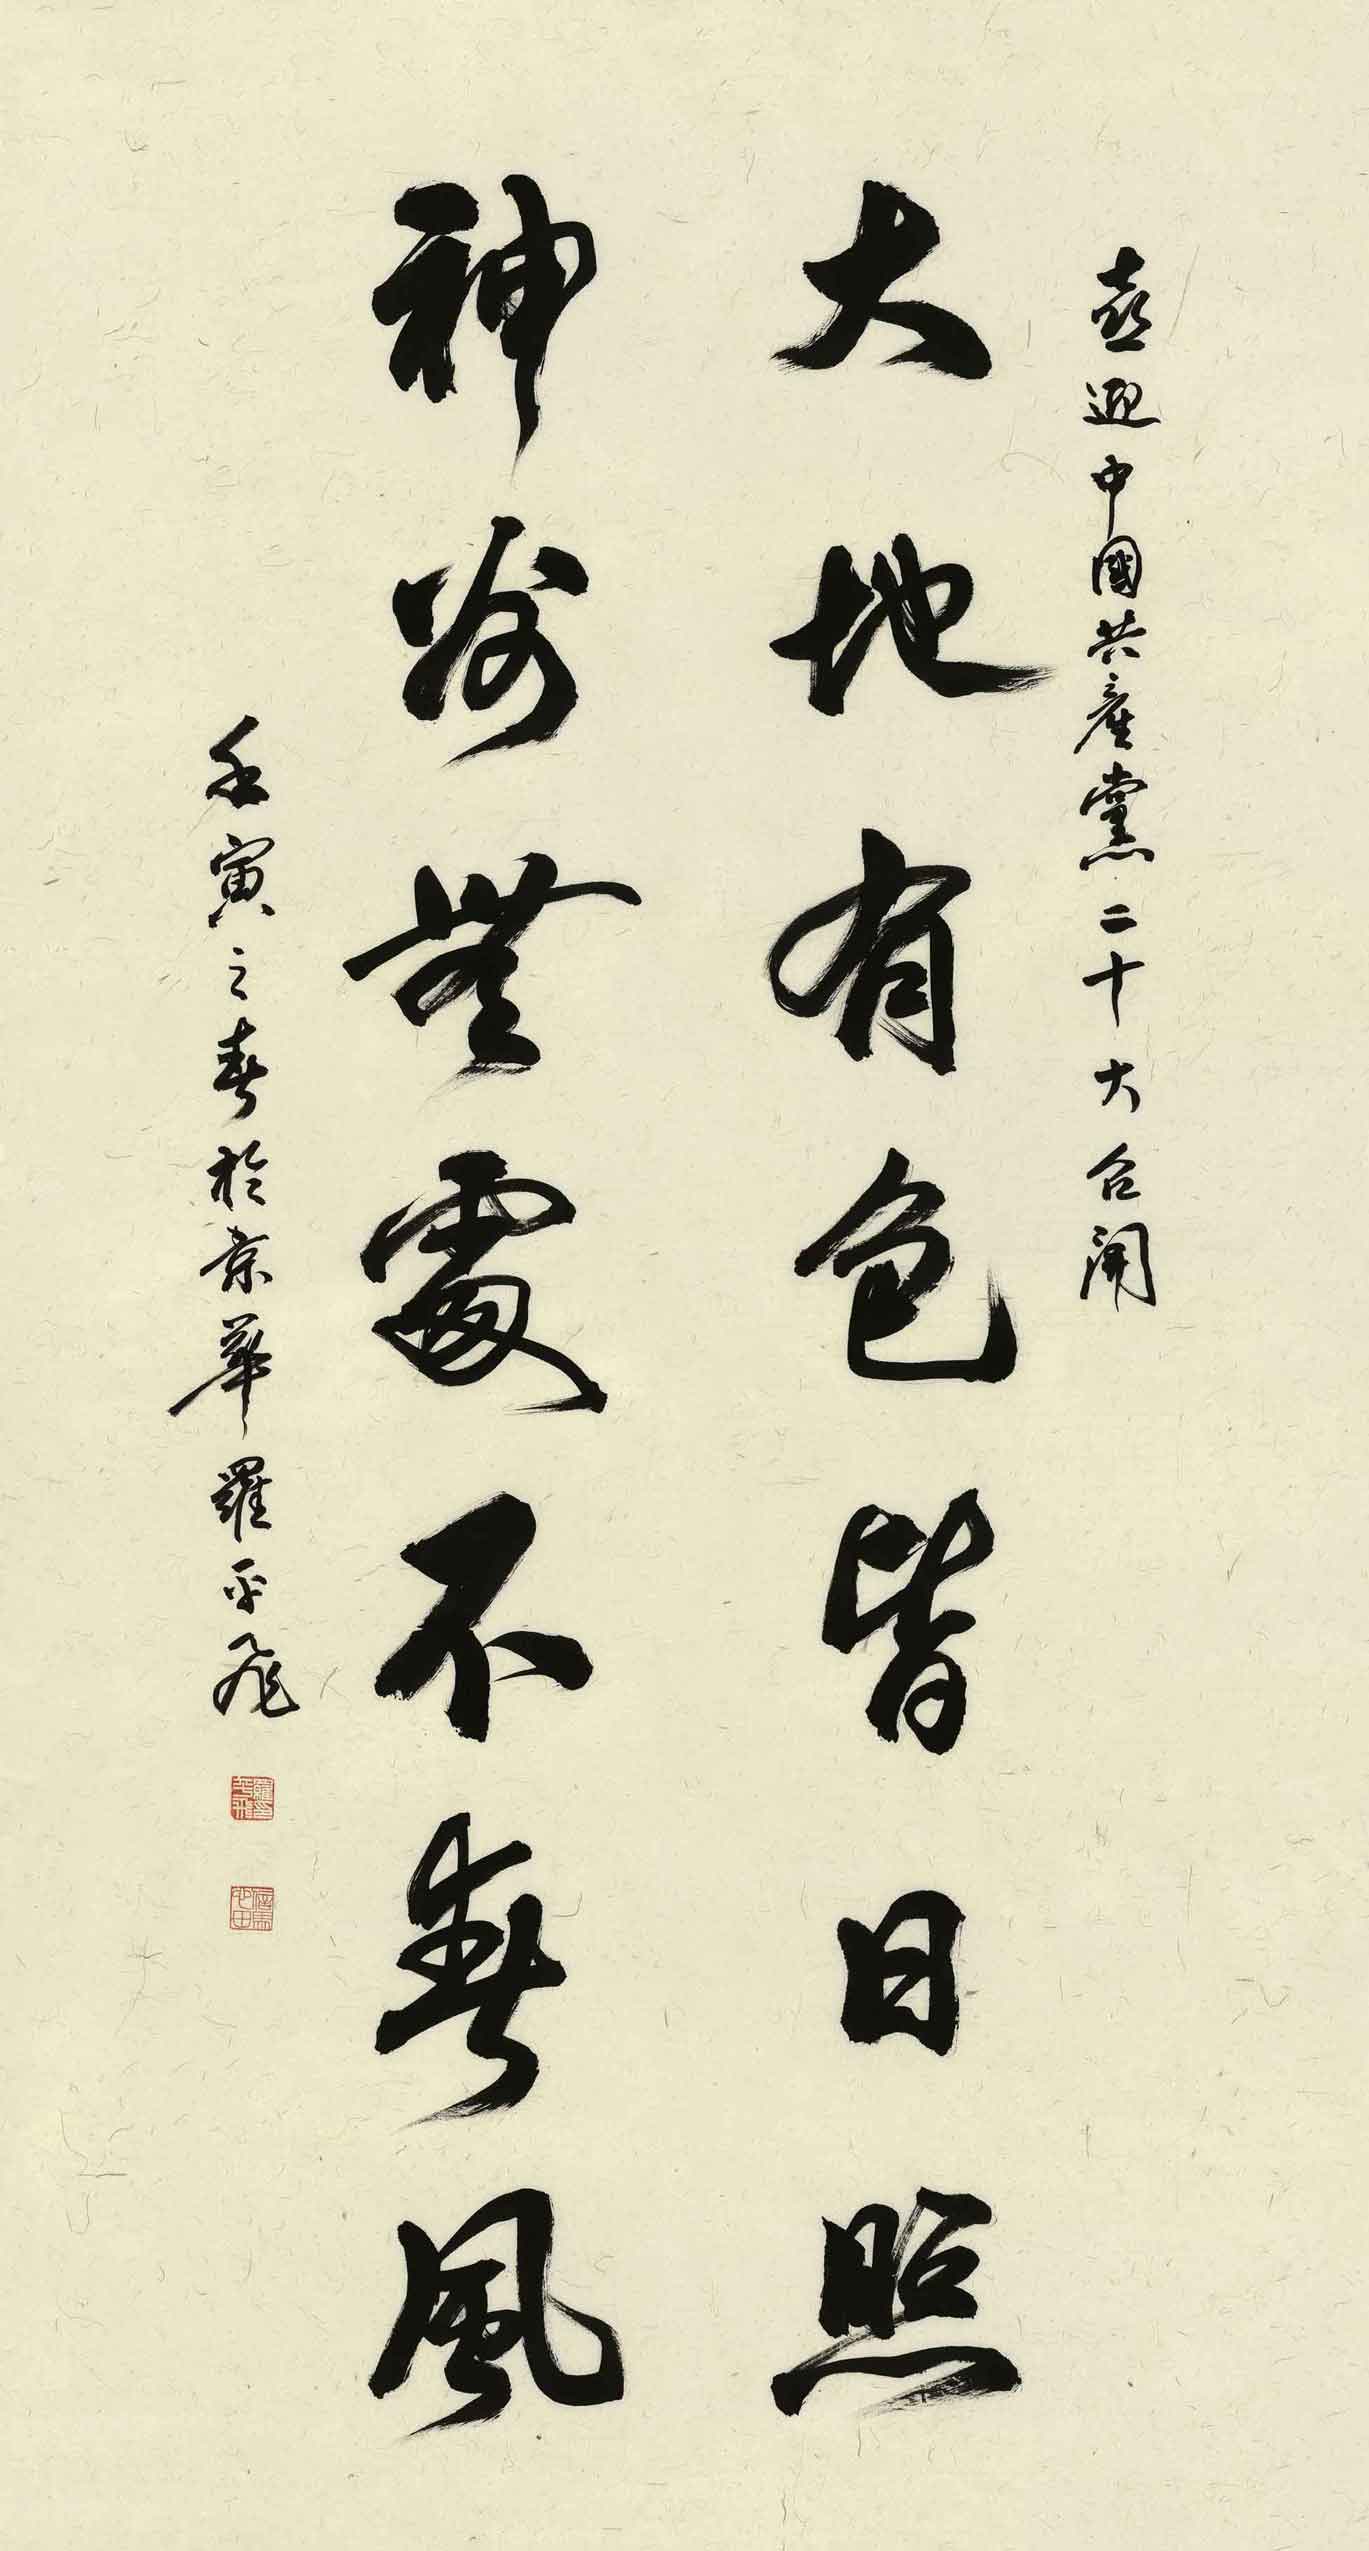 喜迎中國共產黨二十大召開
大地有色皆日照
神州無處不春風
壬寅之春於京華羅平飛